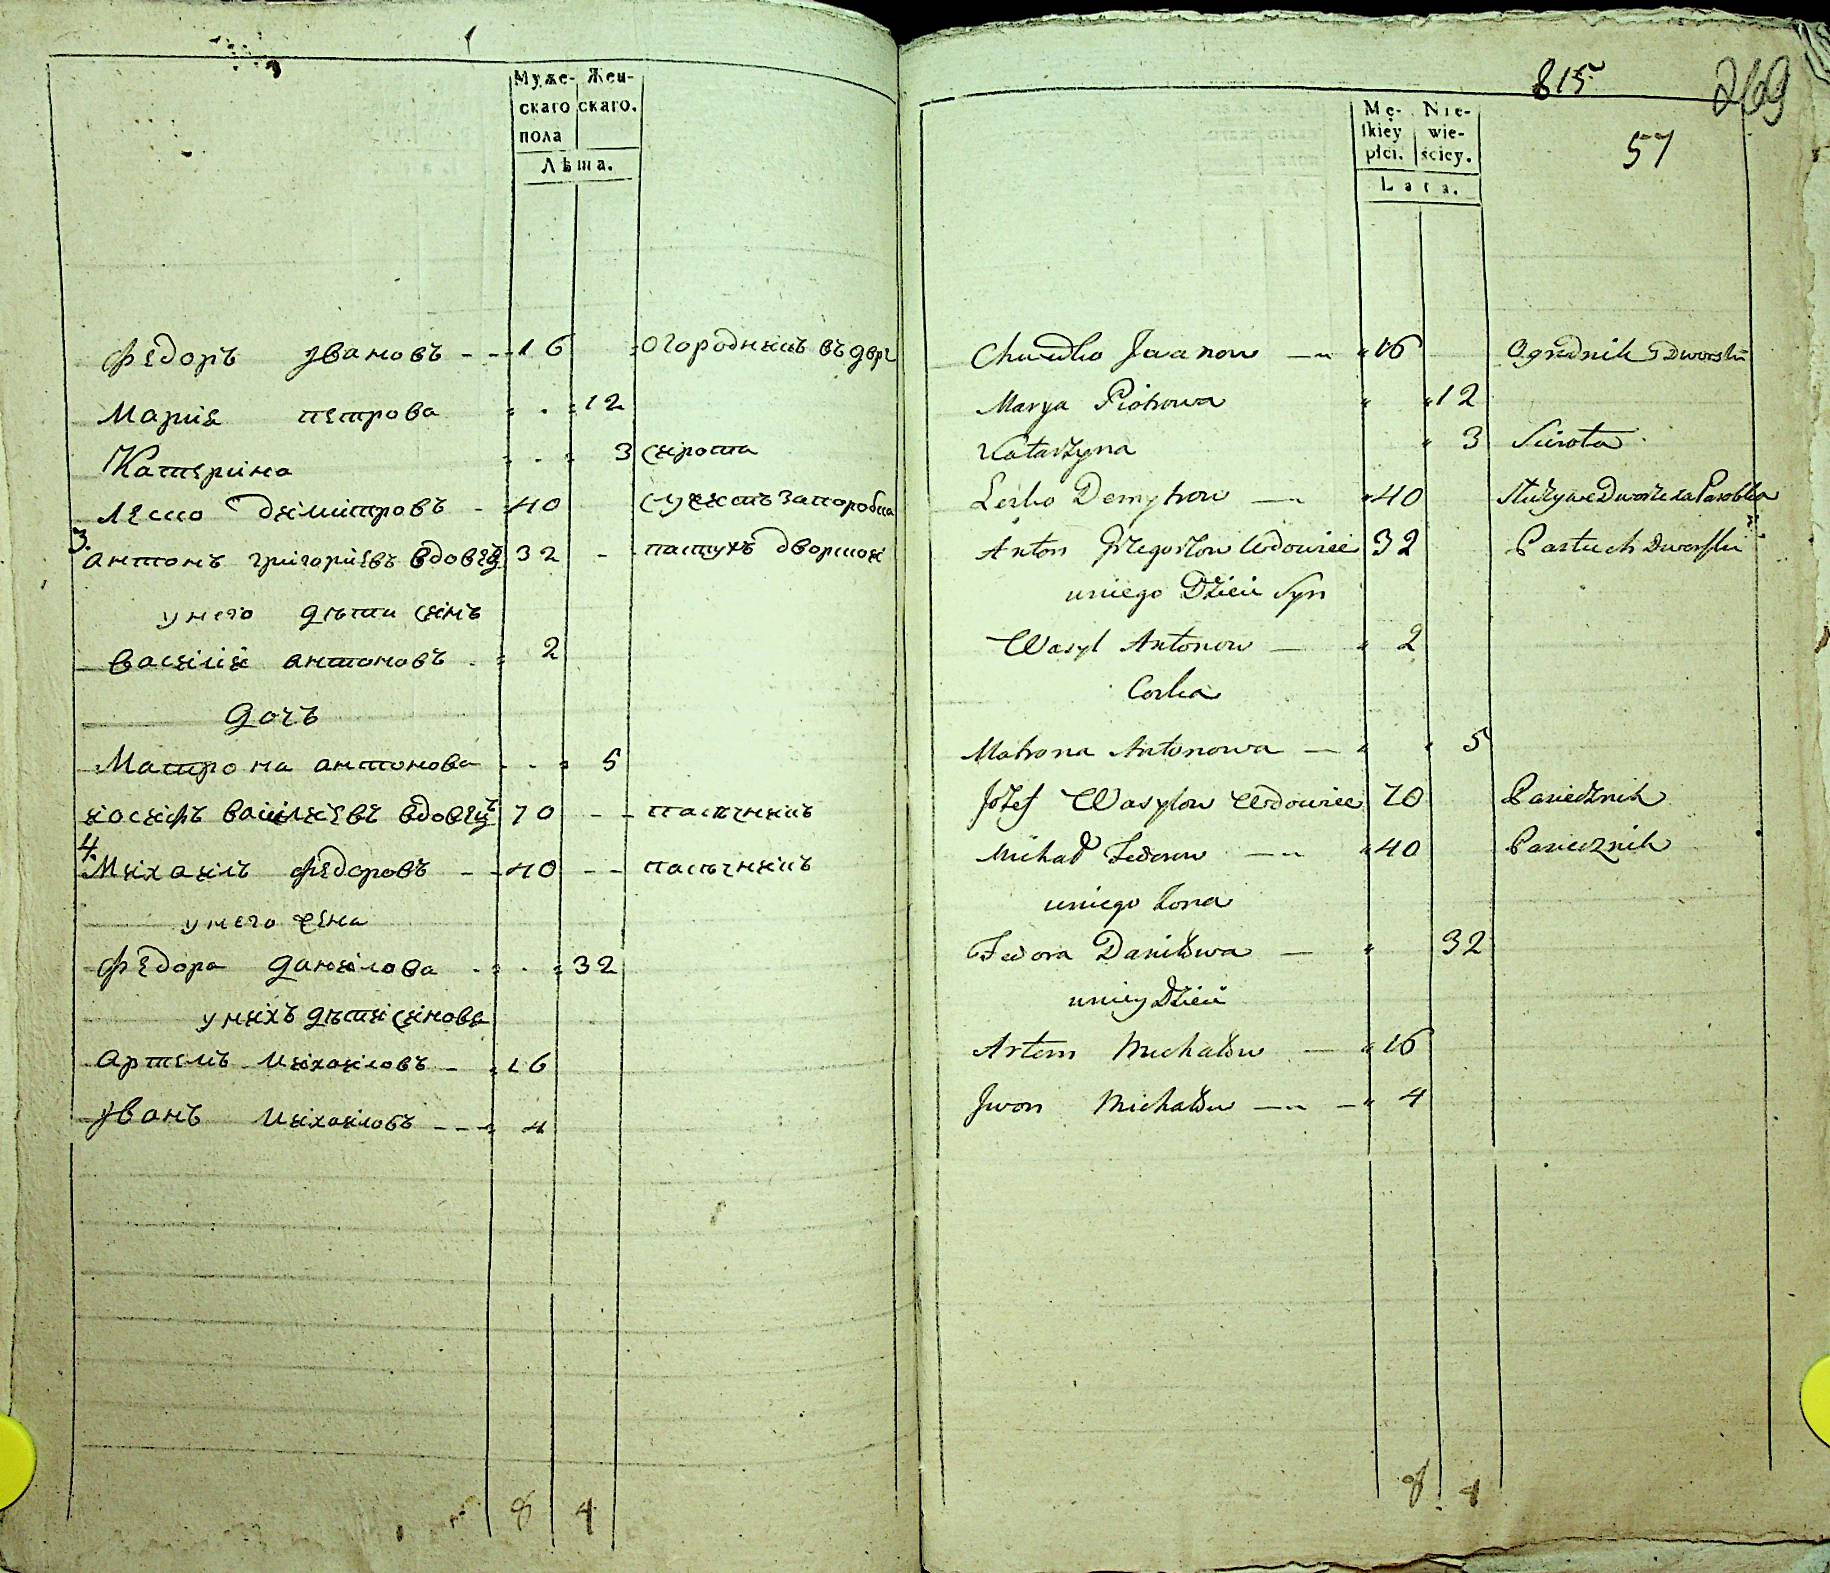 Муже- Жен-
скаго скаго.
пола
Лѣта.
Федоръ Ивановъ - - 16 огородникъ въ дворе
Мария петрова 12
Катерина 3 сирота
Леско димитровъ - 40 служитъ за паробка
3. антонъ григориевъ вдовецъ 32 - пастухъ дворской
у него дѣти синъ
василий антоновъ 2
дочъ
Матрона антонова 5
иосифъ василиевъ вдовецъ 70 - - пасѣчникъ
4. Михаилъ федоровъ - - 40 - - пасѣчникъ
у него жена
федора данилова 32
у нихъ дѣти синове
артемъ михаиловъ - 16
Иванъ михаиловъ - - - 4
8 4
815 269
57
Mę- Nie-
ſkiey wie-
płci. ściey.
Lata.
Chwedko Jwanow — 16 Ogrodnik Dworski
Marya Piotrowa 12
Katarzyna 3 Sierota
Lesko Demytrow — 40 Służy we Dworze za Parobka
Anton Grzegorzow Wdowiec 32 Pastuch Dworski
u niego Dzieci Syn
Wasyl Antonow — 2
Corka
Matrona Antonowa — 5
Jozef Wasylow Wdowiec 70 Pasiecznik
Michał Fedorow — 40 Pasiecznik
u niego Zona
Fedora Daniłowa — 32
u niey Dzieci
Artem Michałow — 16
Jwon Michałow — 4
8 4